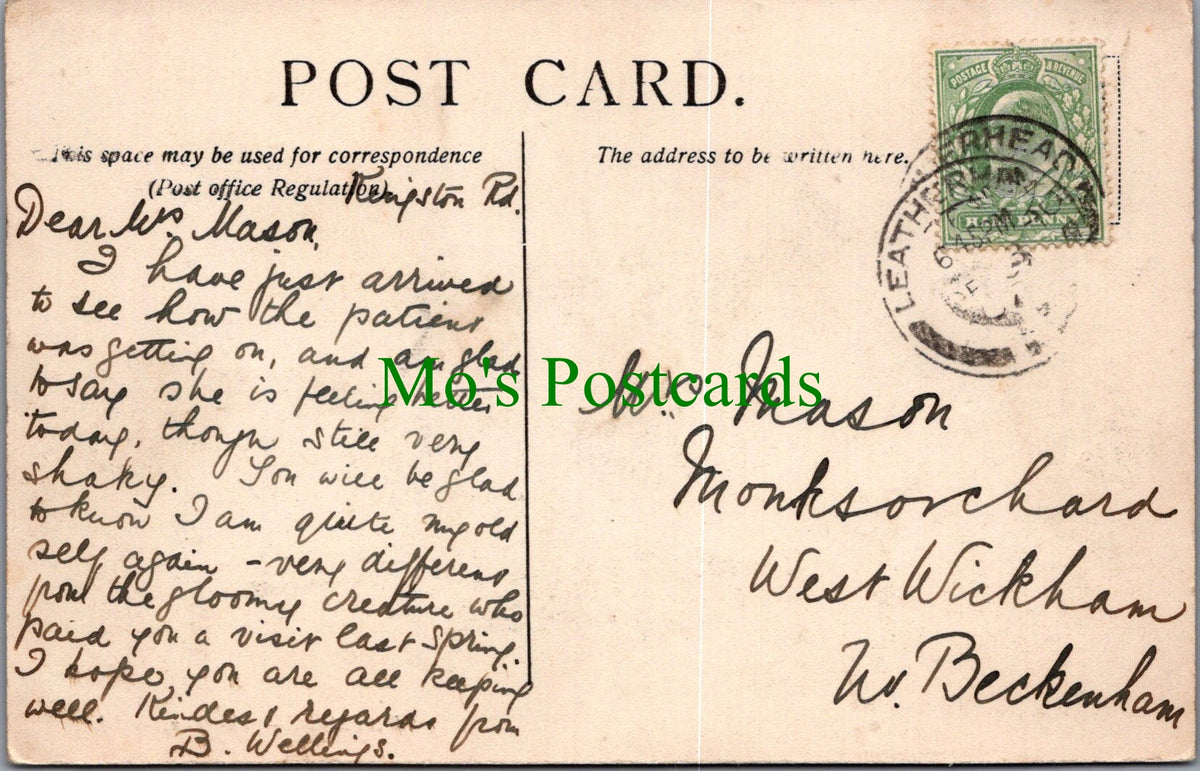 POST CARD.
This space may be used for correspondence
(Post office Regulation)
The address to be written here.
POSTAGE & REVENUE
HALFPENNY
LEATHERHEAD
6 45PM
Kingston Rd.
Dear Mrs Mason,
I have just arrived
to see how the patient
was getting on, and am glad
to say she is feeling better
today, though still very
shaky. You will be glad
to know I am quite my old
self again - very different
from the gloomy creature who
paid you a visit last Spring.
I hope you are all keeping
well. Kindest regards from
B. Wellings.
Mrs Mason
Monksorchard
West Wickham
Nr. Beckenham
Mo's Postcards